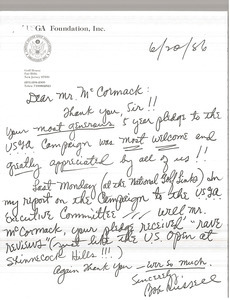 USGA Foundation, Inc.
6/20/86
Dear Mr. McCormack:
Thank you, Sir!!
Your most generous 5 year pledge to the
USGA Campaign was most welcome and
greatly appreciated by all of us!!
Last Monday (at the National Golf Links) in
my report on the Campaign to the USGA
Executive Committee — well Mr.
McCormack, your pledge received "rave
reviews" (just like the U.S. Open at
Shinnecock Hills!!!)
Again thank you — so much.
Sincerely,
Bob Russell